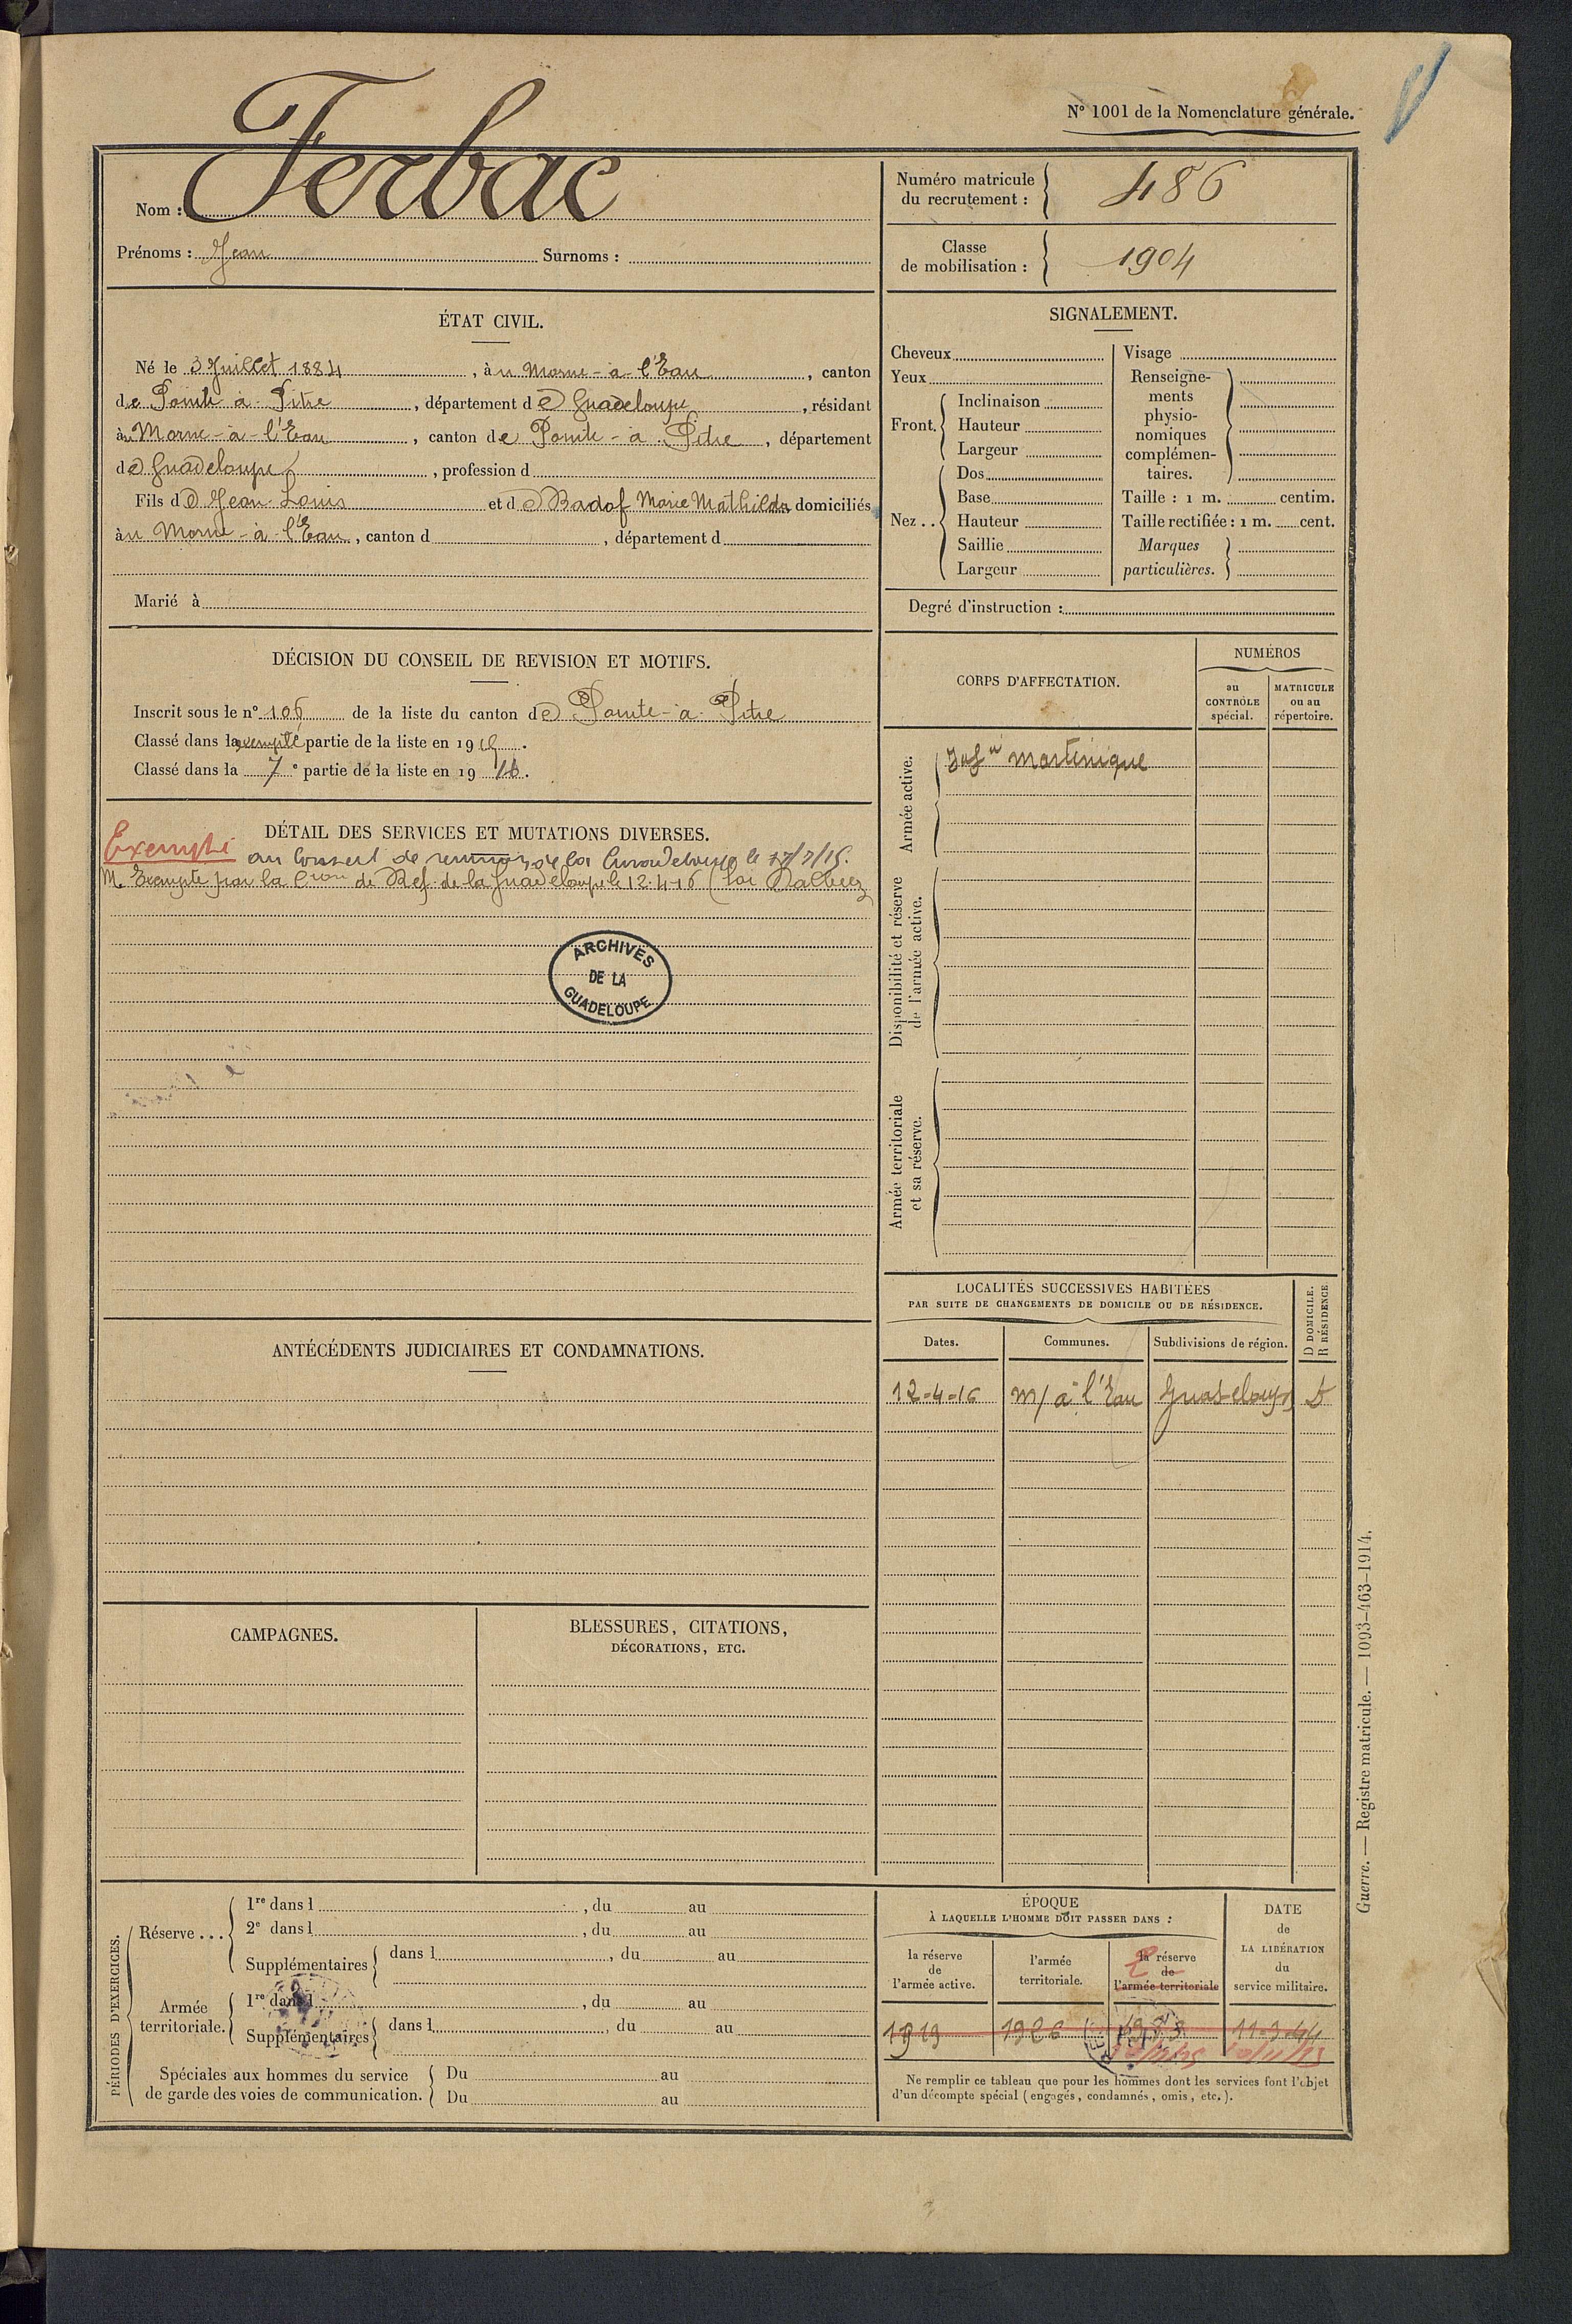 N° 1001 de la Nomenclature générale.
Nom : Ferbac
Prénoms : Jean Surnoms :
Numéro matricule du recrutement : 486
Classe de mobilisation : 1904
ÉTAT CIVIL.
Né le 3 Juillet 1884, à u Morne-à-l'Eau, canton
de Pointe à Pitre, département de Guadeloupe, résidant
àu Morne-à-l'Eau, canton de Pointe-à-Pitre, département
de Guadeloupe, profession d
Fils de Jean Louis et de Badof Marie Mathilde domiciliés
àu Morne-à-l'Eau, canton d , département d
Marié à
SIGNALEMENT.
Cheveux
Yeux
Front. Inclinaison
Hauteur
Largeur
Nez .. Dos
Base
Hauteur
Saillie
Largeur
Visage
Renseigne-
ments
physio-
nomiques
complémen-
taires.
Taille : 1 m. centim.
Taille rectifiée : 1 m. cent.
Marques
particulières.
Degré d'instruction :
DÉCISION DU CONSEIL DE REVISION ET MOTIFS.
Inscrit sous le n° 106 de la liste du canton de Pointe-à-Pitre
Classé dans la exempté partie de la liste en 1915.
Classé dans la 7e partie de la liste en 1916.
DÉTAIL DES SERVICES ET MUTATIONS DIVERSES.
Exempté au Conseil de revision de la Guadeloupe le
M. Exempté par la Cion de Ref. de la Guadeloupe le 12.4.16 (Loi Dalbiez
ARCHIVES
DE LA
GUADELOUPE
CORPS D'AFFECTATION.
NUMÉROS
au
CONTRÔLE
spécial.
MATRICULE
ou au
répertoire.
Armée active.
Infie Martinique
Disponibilité et réserve
de l'armée active.
Armée territoriale
et sa réserve.
LOCALITÉS SUCCESSIVES HABITÉES
PAR SUITE DE CHANGEMENTS DE DOMICILE OU DE RÉSIDENCE.
D DOMICILE.
R RÉSIDENCE
Dates. Communes. Subdivisions de région.
12-4-16 M/à l'Eau Guadeloupe D
ANTÉCÉDENTS JUDICIAIRES ET CONDAMNATIONS.
CAMPAGNES.
BLESSURES, CITATIONS,
DÉCORATIONS, ETC.
PÉRIODES D'EXERCICES.
Réserve ... 1re dans l , du au
2e dans l , du au
Supplémentaires dans l , du au
Armée
territoriale. 1re dans l , du au
Supplémentaires dans l , du au
Spéciales aux hommes du service
de garde des voies de communication.
Du au
Du au
ÉPOQUE
À LAQUELLE L'HOMME DOIT PASSER DANS :
la réserve
de
l'armée active.
l'armée
territoriale.
la réserve
de
l'armée territoriale
DATE
de
LA LIBÉRATION
du
service militaire.
1919 1926 1933
Ne remplir ce tableau que pour les hommes dont les services font l'objet
d'un décompte spécial (engagés, condamnés, omis, etc.).
Guerre. — Registre matricule. — 1093-463-1914.